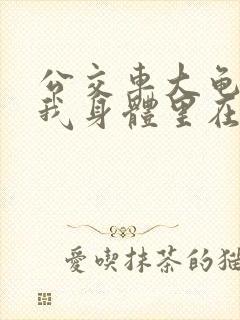 公交車大龟
我身體里在
愛喫抹茶的猫